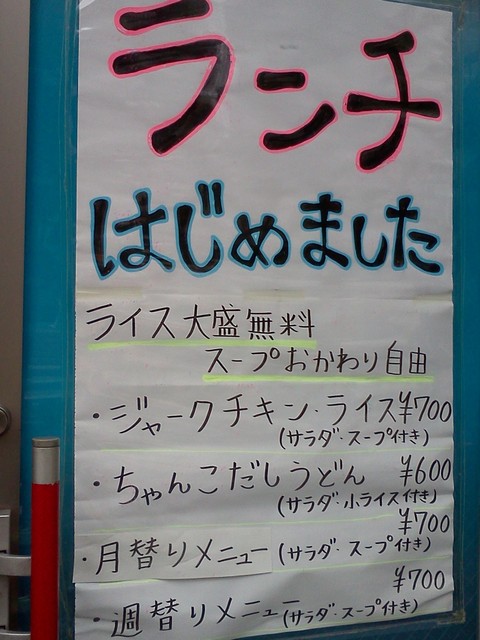 ランチ
はじめました
ライス大盛無料
スープおかわり自由
・ジャークチキン・ライス¥700
(サラダ・スープ付き)
・ちゃんこだしうどん ¥600
(サラダ・小ライス付き)
¥700
・月替りメニュー(サラダ・スープ付き)
¥700
・週替りメニュー(サラダ・スープ付き)